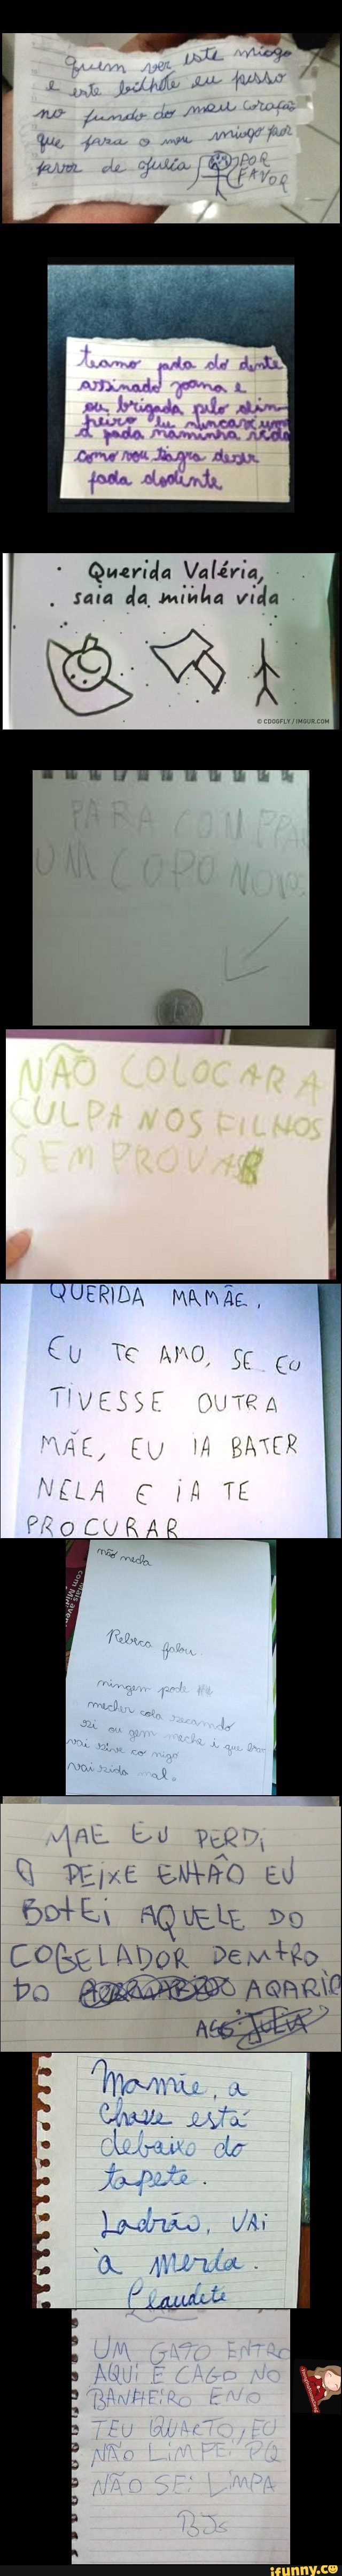 quem ver este miogo
e este bilhete eu pesso
no fundo do meu coração
que faza o meu miogo por
favor de Julia POR
FAVOR
teamo fada do dente
assinado joana e
ou brigada pelo din
heiro eu nuncavi uma
fada naminha
como vou
fada dodente
Querida Valéria,
saia da minha vida
© CDOGFLY / IMGUR.COM
PARA COMPPAR
UM COPO NOVO
NÃO COLOCAR A
CULPA NOS FILHOS
SEM PROVAR
QUERIDA MAMÃE,
EU TE AMO, SE EU
TIVESSE OUTRA
MÃE, EU IA BATER
NELA E IA TE
PROCURAR
não mecha
Rebeca falou.
ningem pode
mecher cola secando
si ou gem mecha i que
vai co migo
vai mal.
MAE EU PERDI
O PEIXE ENTÂO EU
BOTEI AQUELE DO
COGELADOR DEMTRO
DO AQARIO
ASS: JULIA
Mamãe, a
Chave está
debaixo do
tapete.
Ladrão, VAi
à merda.
Claudete
UM GATO ENTRO
AQUI E CAGO NO
BANHEIRO E NO
TEU QUARTO, EU
NÃO LIMPEI PQ
NÃO SEI LIMPA
BJs
ifunny.co